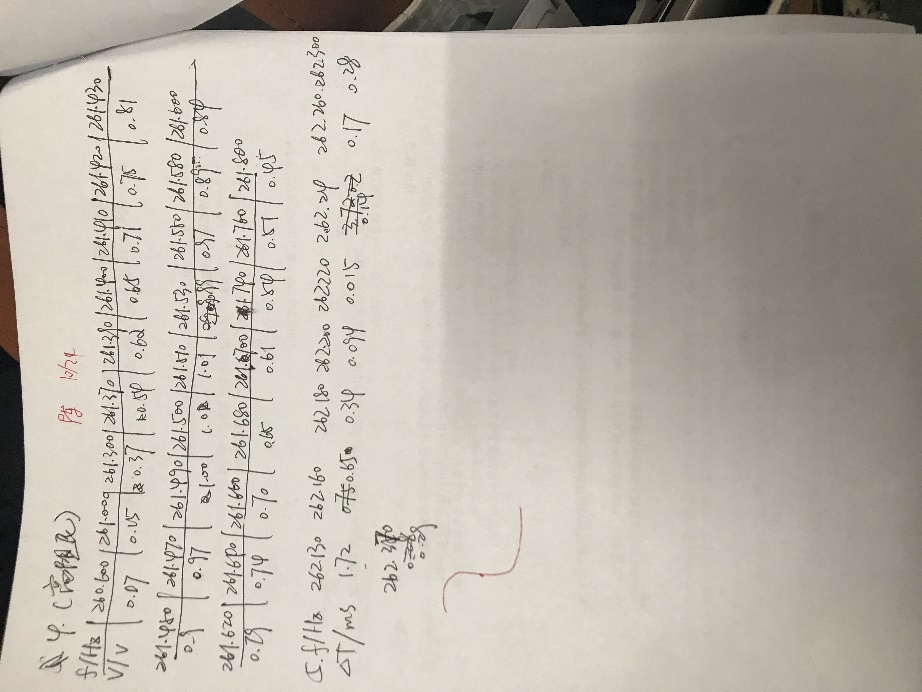 10/24
4.(高阻尼)
f/Hz 260.600 261.000 261.300 261.370 261.390 261.400 261.410 261.420 261.430
V/V 0.07 0.15 0.37 0.54 0.62 0.65 0.71 0.75 0.81
261.450 261.470 261.490 261.500 261.510 261.530 261.550 261.580 261.600
0.9 0.97 1.00 1.01 0.97 0.89 0.84
261.620 261.640 261.660 261.680 261.700 261.740 261.760 261.800
0.79 0.74 0.70 0.65 0.61 0.54 0.51 0.45
5. f/Hz 262.130 262.160 262.180 262.200 262.220 262.24 262.260 262.300
ΔT/ms 1.72 0.650 0.34 0.094 0.015 0.14 0.17 0.28
0.29